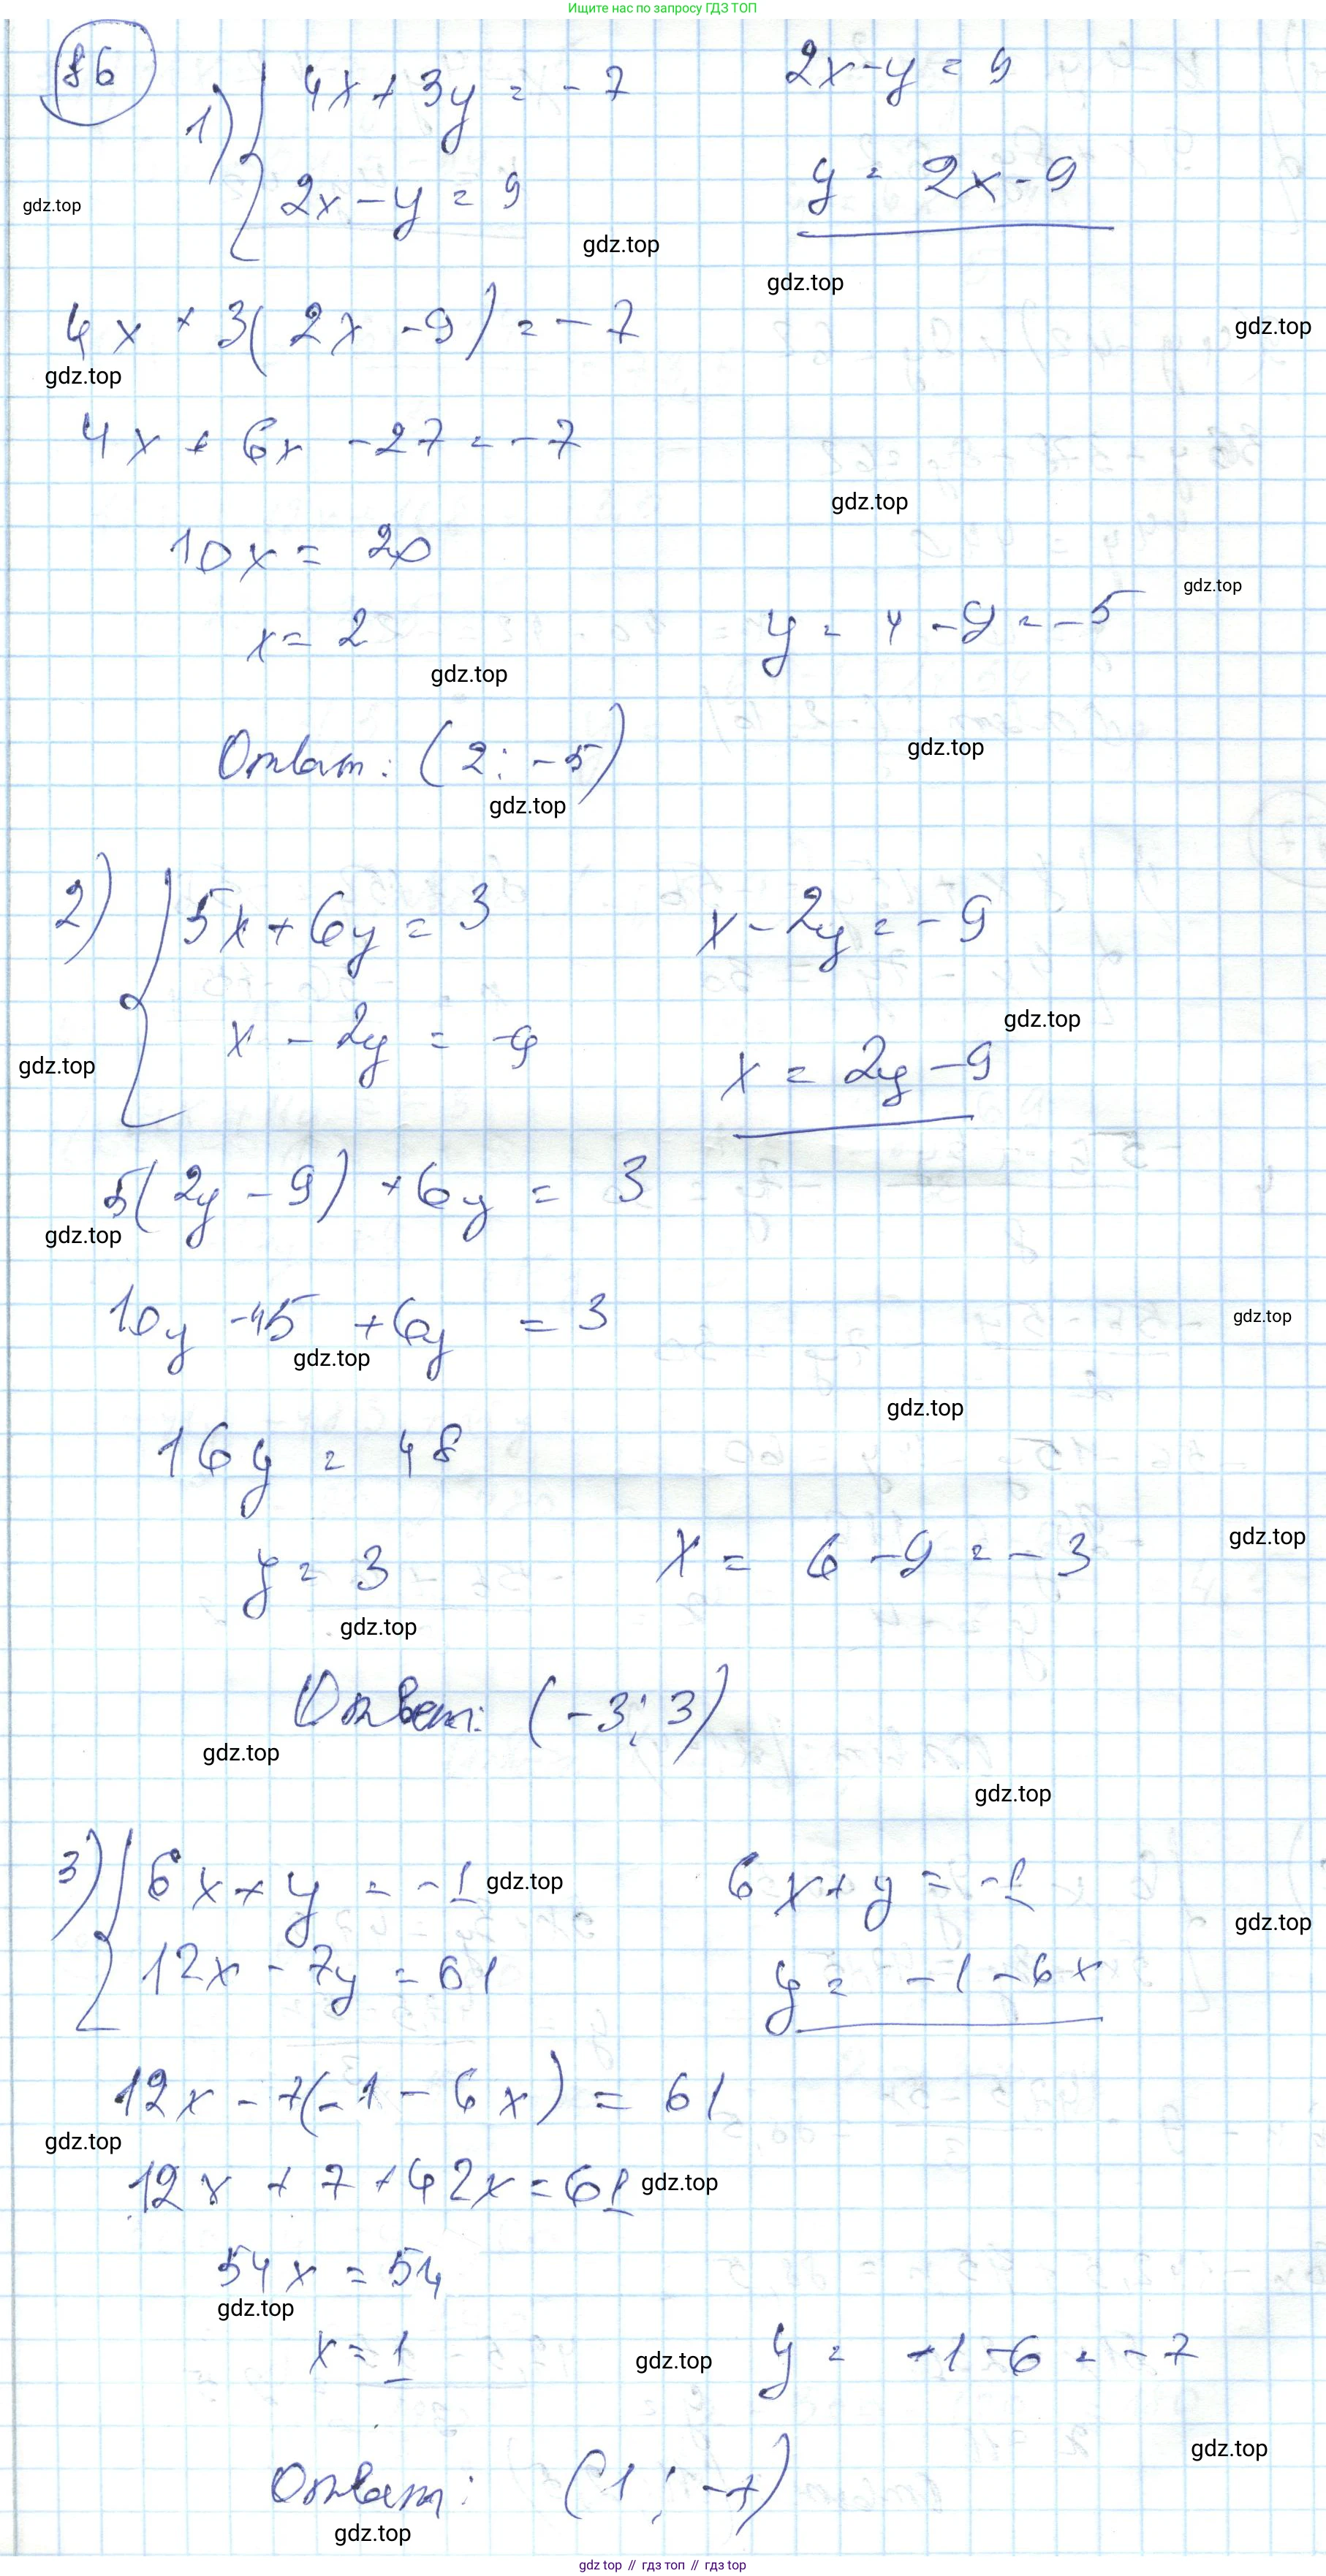 Ищите нас по запросу ГДЗ ТОП
86
1) { 4x + 3y = -7
2x - y = 9
2x - y = 9
y = 2x - 9
gdz.top
gdz.top
gdz.top
4x + 3(2x - 9) = -7
gdz.top
gdz.top
4x + 6x - 27 = -7
gdz.top
10x = 20
gdz.top
x = 2
y = 4 - 9 = -5
gdz.top
Ответ: (2; -5)
gdz.top
gdz.top
2) { 5x + 6y = 3
x - 2y = -9
x - 2y = -9
gdz.top
x = 2y - 9
gdz.top
5(2y - 9) + 6y = 3
gdz.top
10y - 45 + 6y = 3
gdz.top
gdz.top
gdz.top
16y = 48
gdz.top
y = 3
x = 6 - 9 = -3
gdz.top
Ответ: (-3; 3)
gdz.top
gdz.top
3) { 6x + y = -1
gdz.top
12x - 7y = 61
6x + y = -1
gdz.top
y = -1 - 6x
12x - 7(-1 - 6x) = 61
gdz.top
12x + 7 + 42x = 61
gdz.top
54x = 54
gdz.top
x = 1
gdz.top
y = -1 - 6 = -7
gdz.top
Ответ: (1; -7)
gdz.top
gdz top // гдз топ // гдз top